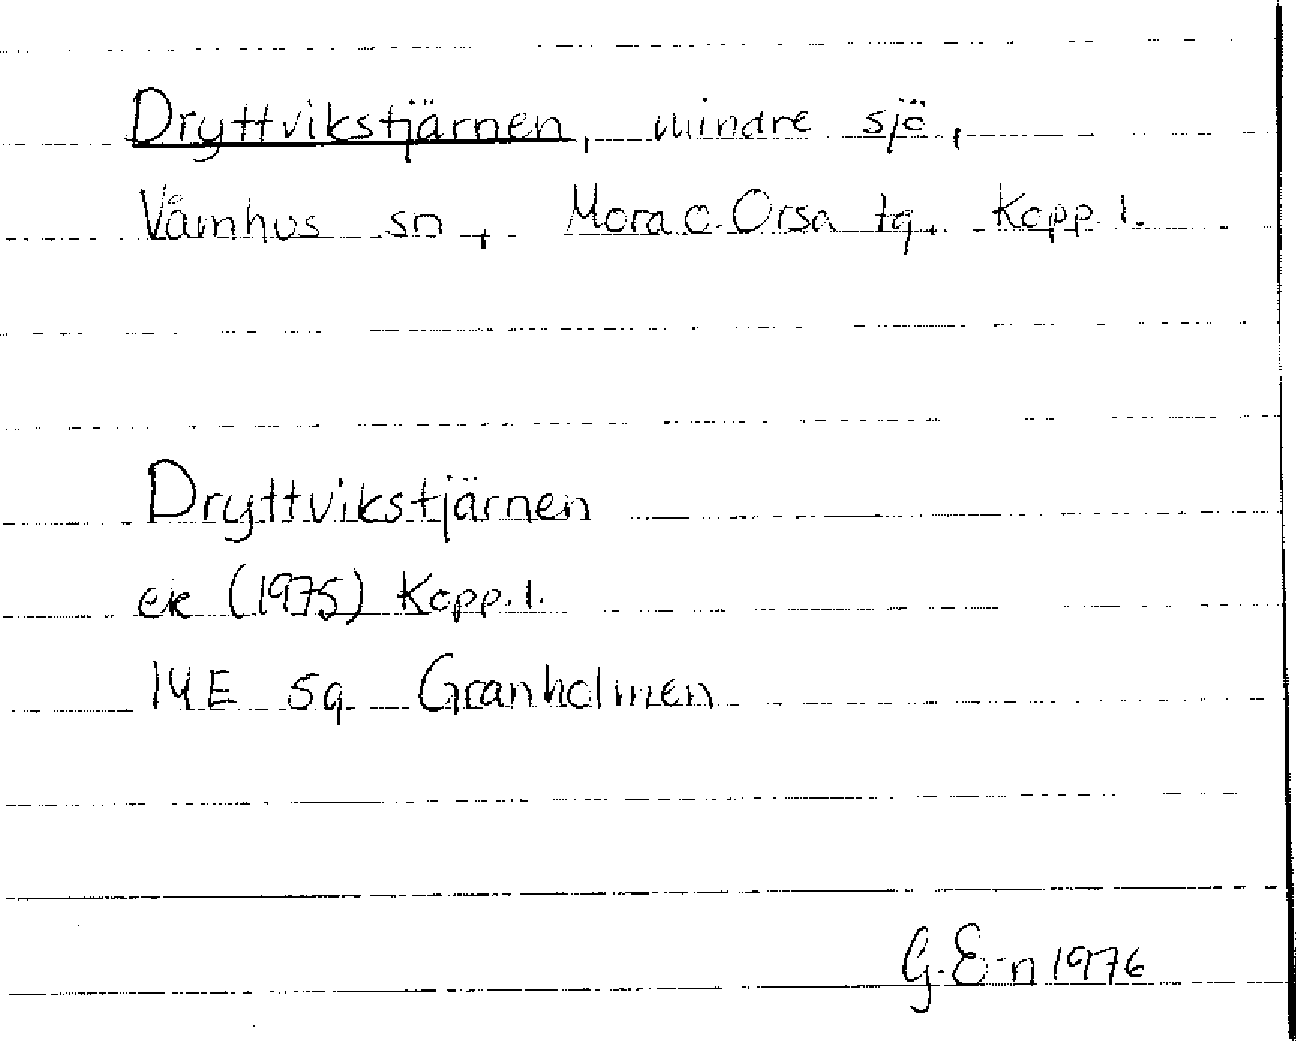 Dryttvikstjärnen, mindre sjö,
Våmhus sn, Mora o. Orsa tg. Kopp. l.
Dryttvikstjärnen
ek (1975) Kopp. l.
14E 5g Granholmen
G. E-n 1976